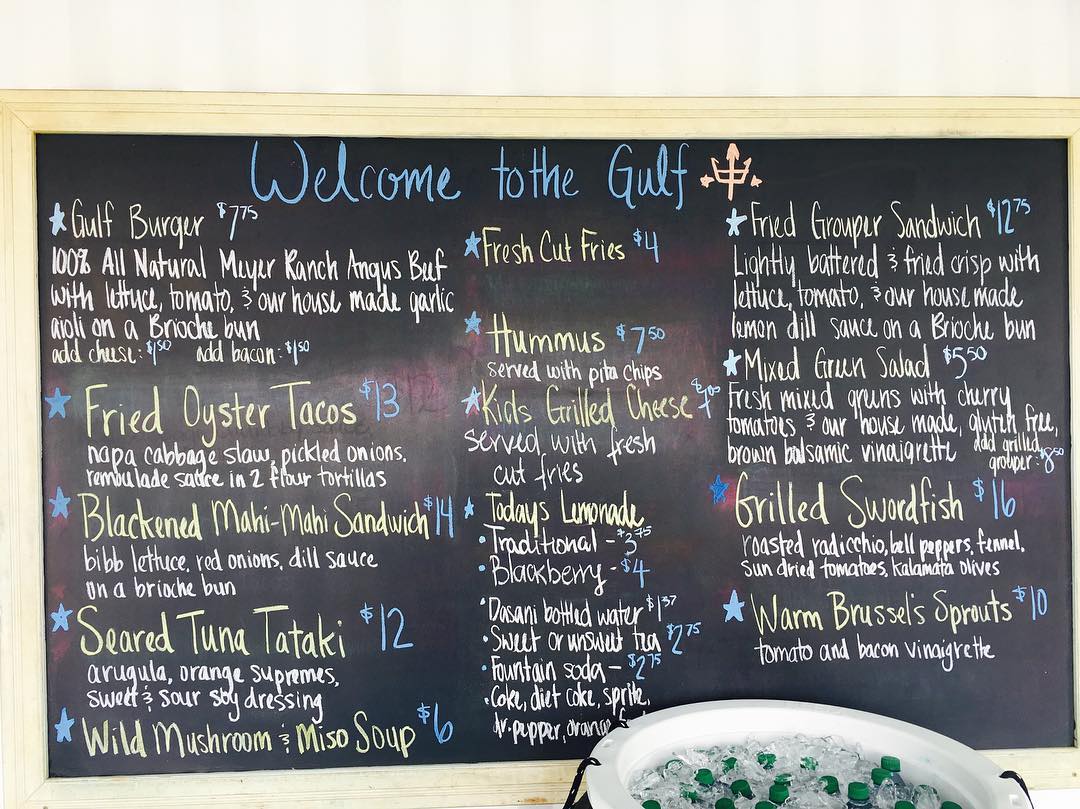 Welcome to the Gulf
Gulf Burger $7.75
100% All Natural Meyer Ranch Angus Beef
with lettuce, tomato, & our house made garlic
aioli on a Brioche bun
add cheese: $1.50 add bacon: $1.50
Fried Oyster Tacos $13
napa cabbage slaw, pickled onions,
remoulade sauce in 2 flour tortillas
Blackened Mahi-Mahi Sandwich $14
bibb lettuce, red onions, dill sauce
on a brioche bun
Seared Tuna Tataki $12
arugula, orange supremes,
sweet & sour soy dressing
Wild Mushroom & Miso Soup $6
Fresh Cut Fries $4
Hummus $7.50
served with pita chips
Kids Grilled Cheese $7.00
served with fresh
cut fries
Todays Lemonade
• Traditional - $3.75
• Blackberry - $4
• Dasani bottled water $1.37
• Sweet or unsweet tea $2.75
• Fountain soda - $2.75
• Coke, diet coke, sprite,
dr. pepper, orange
Fried Grouper Sandwich $12.75
Lightly battered & fried crisp with
lettuce, tomato, & our house made
lemon dill sauce on a Brioche bun
Mixed Green Salad $5.50
Fresh mixed greens with cherry
tomatoes & our house made, gluten free,
brown balsamic vinaigrette add grilled
grouper: $8.50
Grilled Swordfish $16
roasted radicchio, bell peppers, fennel,
sun dried tomatoes, kalamata olives
Warm Brussel's Sprouts $10
tomato and bacon vinaigrette